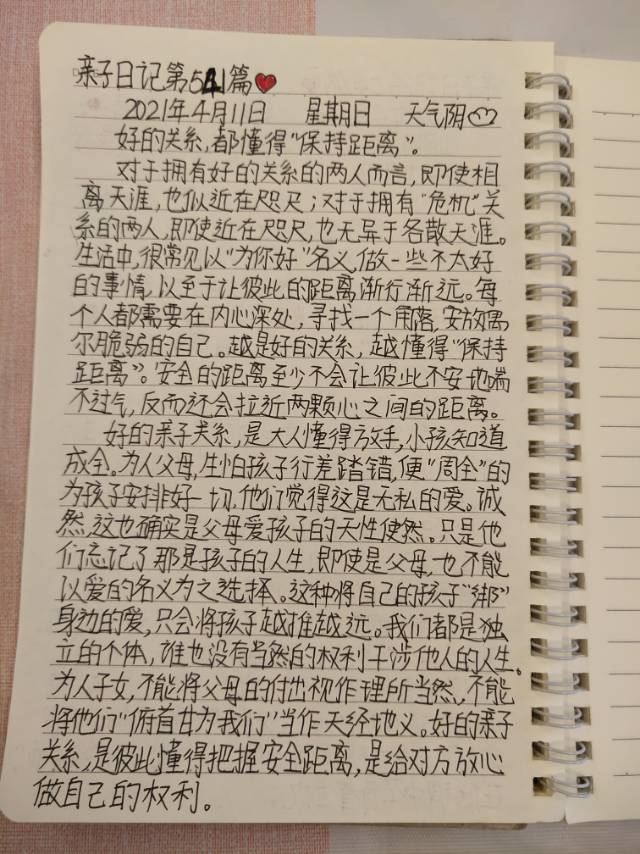 亲子日记第541篇
2021年4月11日 星期日 天气阴
好的关系,都懂得“保持距离”。
对于拥有好的关系的两人而言,即使相
离天涯,也似近在咫尺;对于拥有“危机”关
系的两人,即使近在咫尺,也无异于各散天涯。
生活中,很常见以“为你好”名义,做一些不太好
的事情,以至于让彼此的距离渐行渐远。每
个人都需要在内心深处,寻找一个角落,安放偶
尔脆弱的自己。越是好的关系,越懂得“保持
距离”。安全的距离至少不会让彼此不安地喘
不过气,反而还会拉近两颗心之间的距离。
好的亲子关系,是大人懂得放手,小孩知道
成全。为人父母,生怕孩子行差踏错,便“周全”的
为孩子安排好一切,他们觉得这是无私的爱。诚
然,这也确实是父母爱孩子的天性使然。只是他
们忘记了那是孩子的人生,即使是父母,也不能
以爱的名义为之选择。这种将自己的孩子“绑”
身边的爱,只会将孩子越推越远。我们都是独
立的个体,谁也没有当然的权利干涉他人的人生。
为人子女,不能将父母的付出视作理所当然,不能
将他们“俯首甘为我们”当作天经地义。好的亲子
关系,是彼此懂得把握安全距离,是给对方放心
做自己的权利。